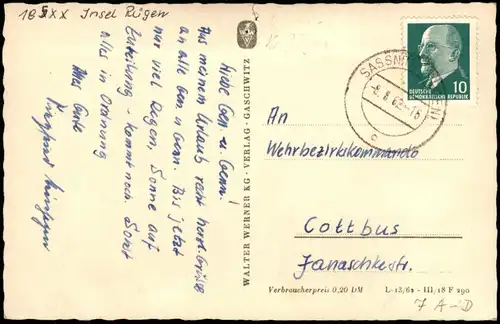 18XXX Insel Rügen
Liebe Gen. u. Genn.!
Aus meinem Urlaub recht herzl. Grüße
an alle Gen u. Genn. Bis jetzt
nur viel Regen, Sonne auf
Zuteilung - kommt noch. Sonst
alles in Ordnung
Alles Gute
WALTER WERNER KG · VERLAG · GASCHWITZ
SASSNITZ
-8.8.62-18
c
10
DEUTSCHE
DEMOKRATISCHE REPUBLIK
An
Wehrbezirkskommando
Cottbus
Janaschkestr.
Verbraucherpreis 0,20 DM
L-13/62 - III/18 F 290
7 A-D